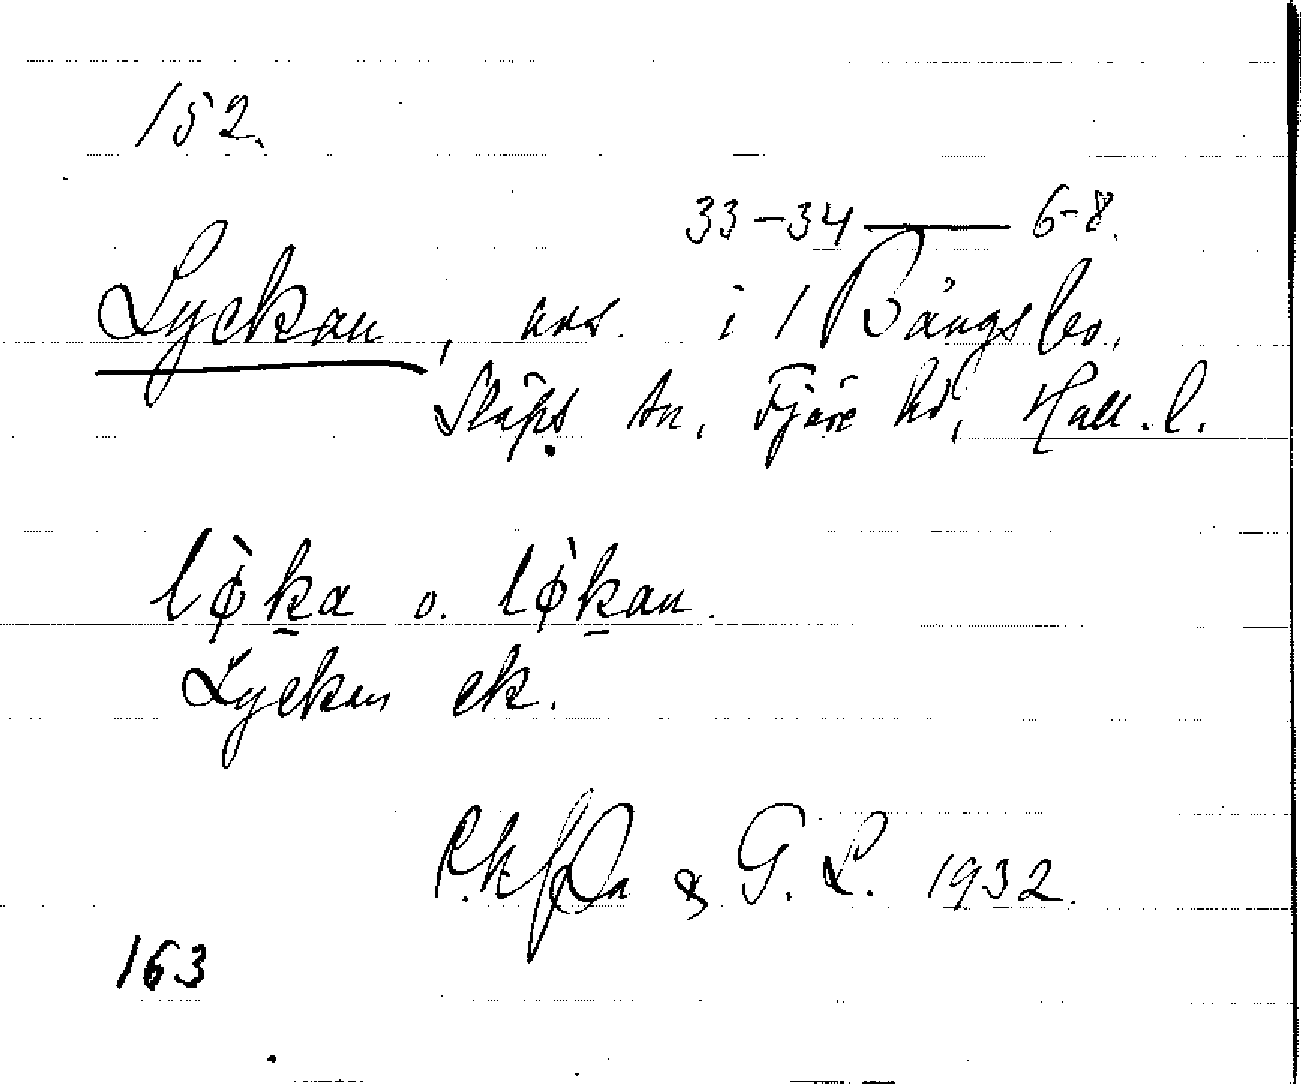 152.
33-34 —— 6-8.
Lyckan, avs. i 1 Bångsbo,
Släps sn, Fjäre hd, Hall. l.
lø̀ka o. lø̀kan.
Lyckan ek.
& G. L. 1932.
163